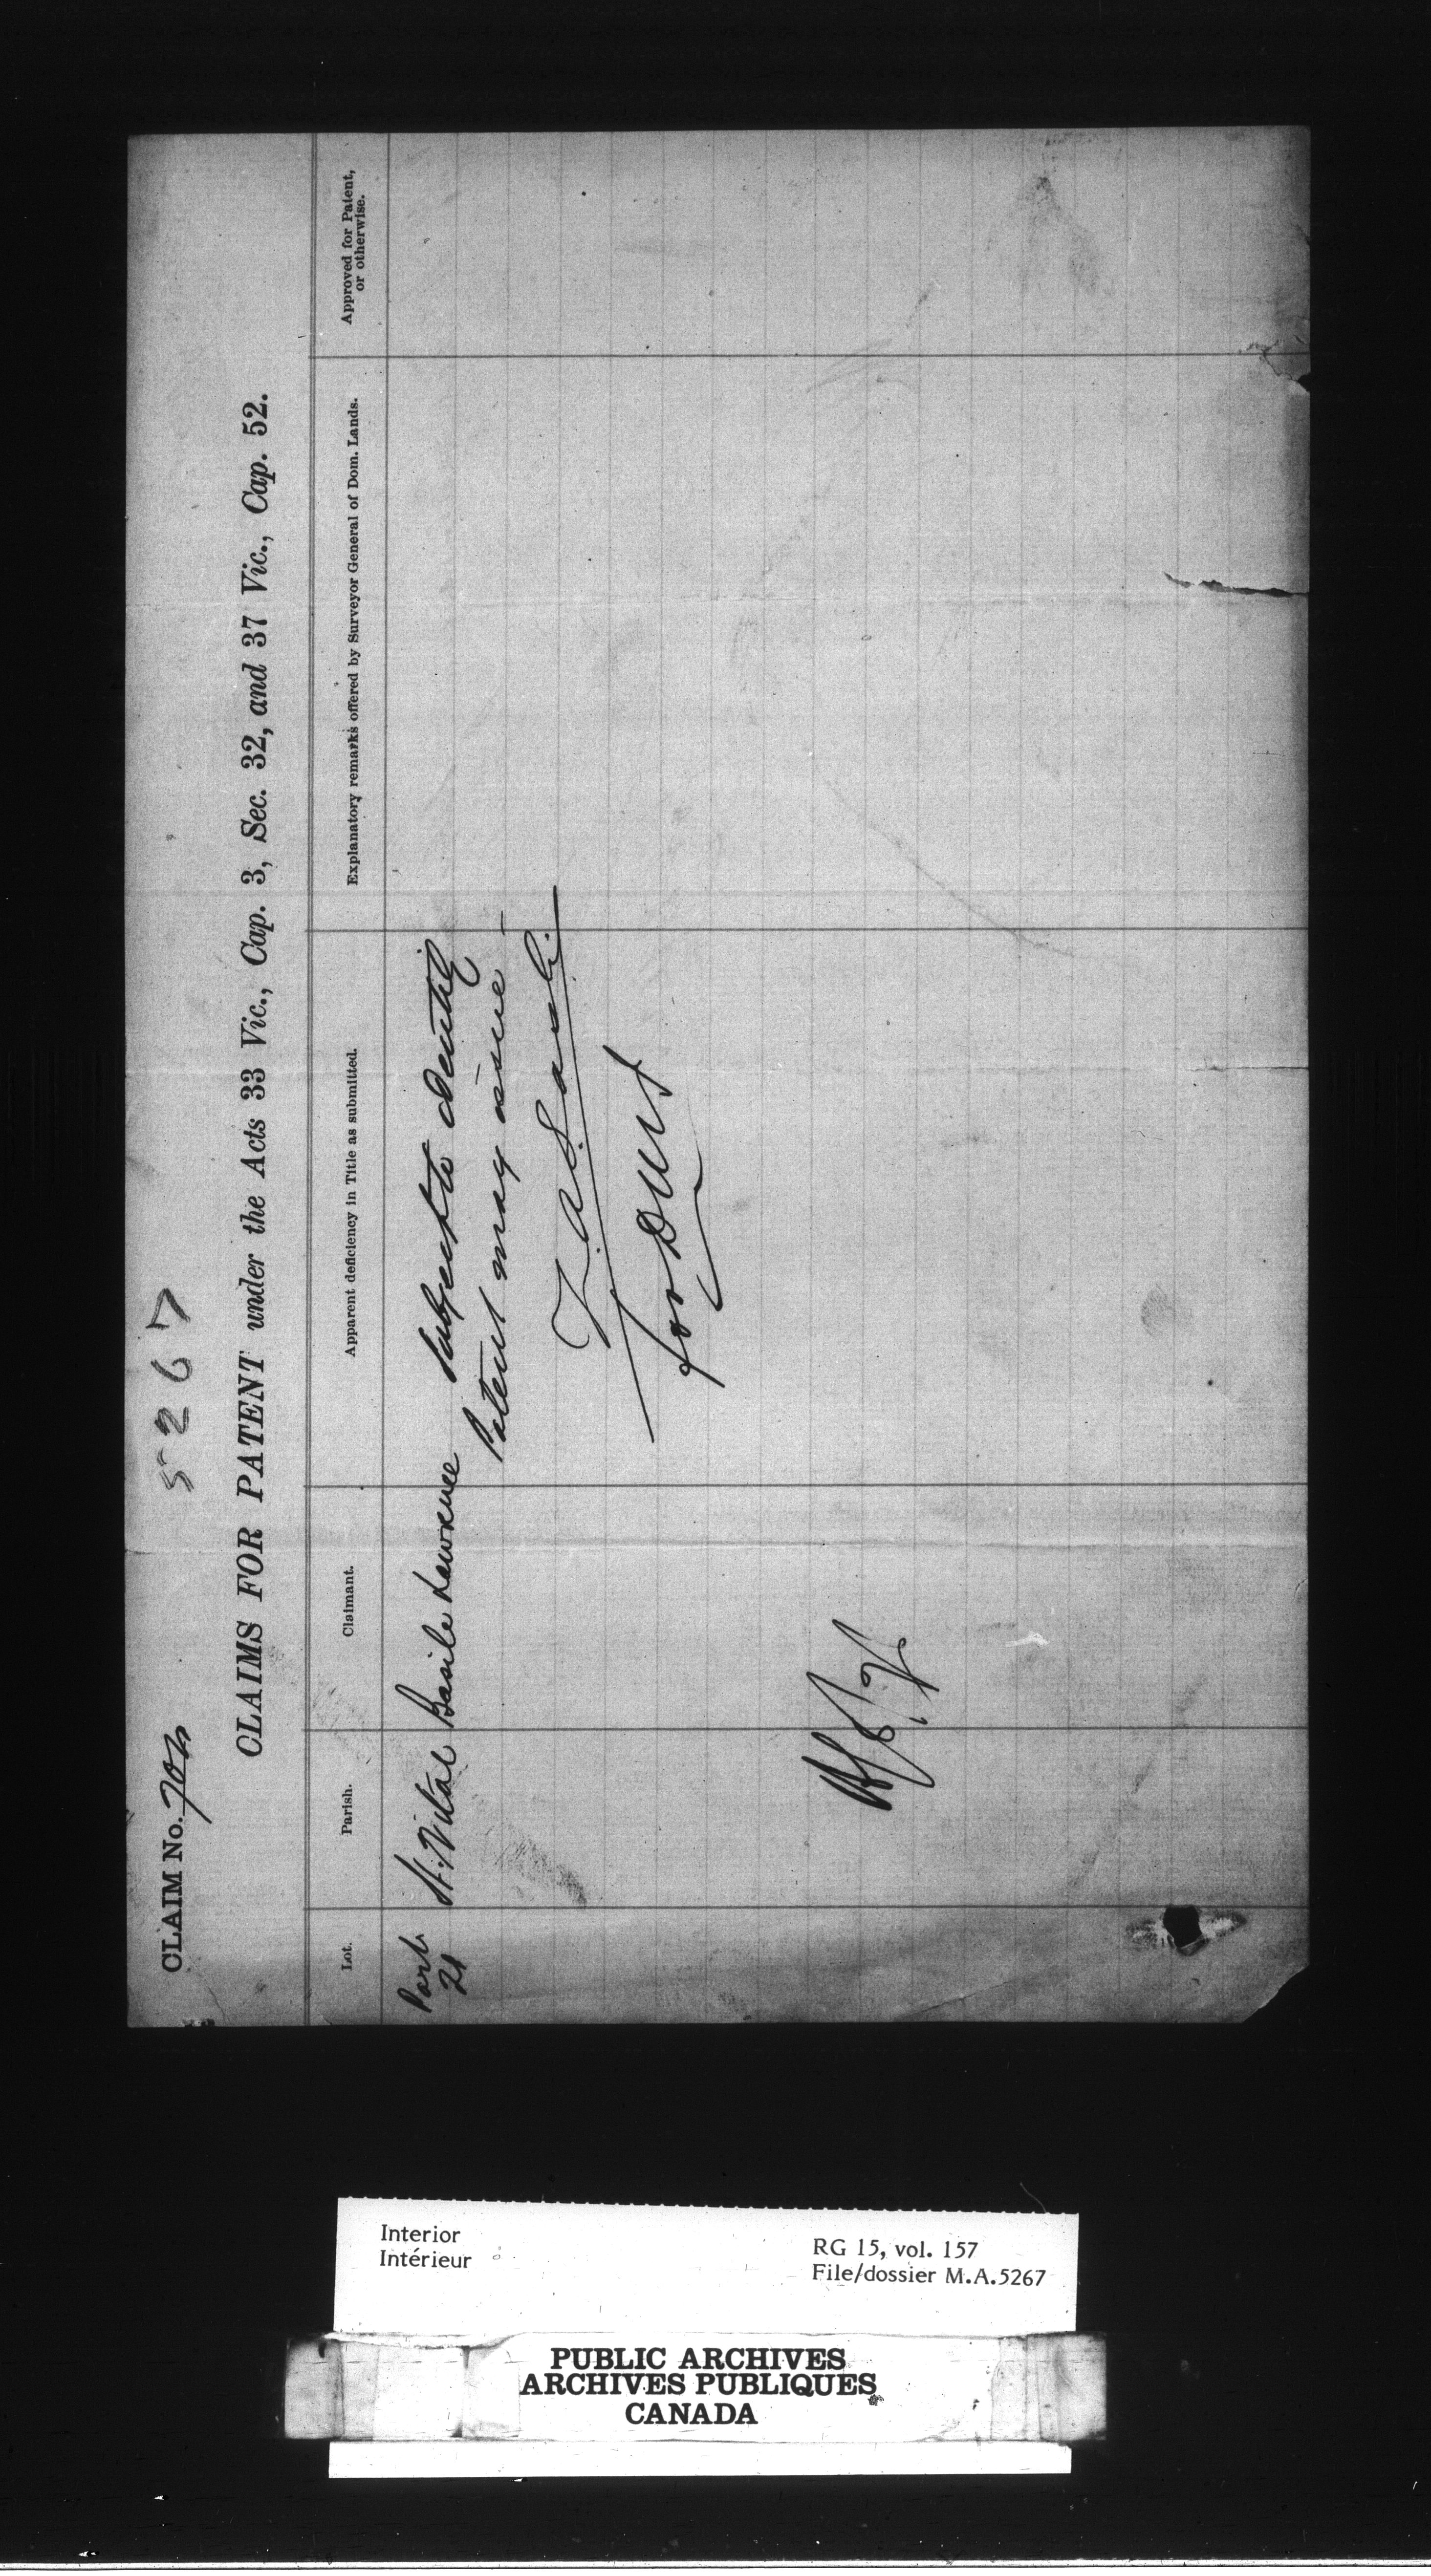 CLAIM No. 702
5267
CLAIMS FOR PATENT under the Acts 33 Vic., Cap. 3, Sec. 32, and 37 Vic., Cap. 52.
Lot.
Parish.
Claimant.
Apparent deficiency in Title as submitted.
Explanatory remarks offered by Surveyor General of Dom. Lands.
Approved for Patent,
or otherwise.
Part
21
St. Vital
Basile Lawrence
Subject to identity
Patent may issue —
for
Interior
Intérieur
RG 15, vol. 157
File/dossier M.A.5267
PUBLIC ARCHIVES
ARCHIVES PUBLIQUES
CANADA